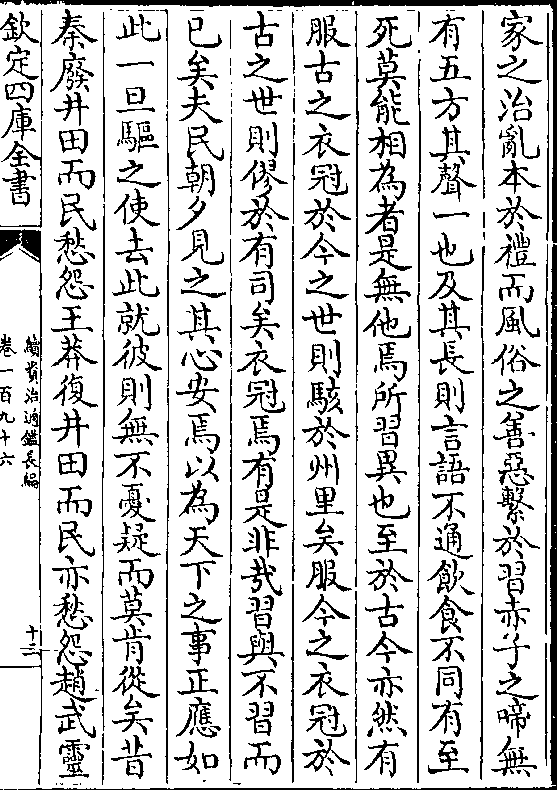 家之治亂本於禮而風俗之善惡繫於習赤子之啼無
有五方其聲一也及其長則言語不通飲食不同有至
死莫能相為者是無他焉所習異也至於古今亦然有
服古之衣冠於今之世則駭於州里矣服今之衣冠於
古之世則僇於有司矣衣冠焉有是非哉習與不習而
已矣夫民朝夕見之其心安焉以為天下之事正應如
此一旦驅之使去此就彼則無不憂疑而莫肯從矣昔
秦廢井田而民愁怨王莽復井田而民亦愁怨趙武靈
欽定四庫全書
續資治通鑑長編
卷一百九十六
十三